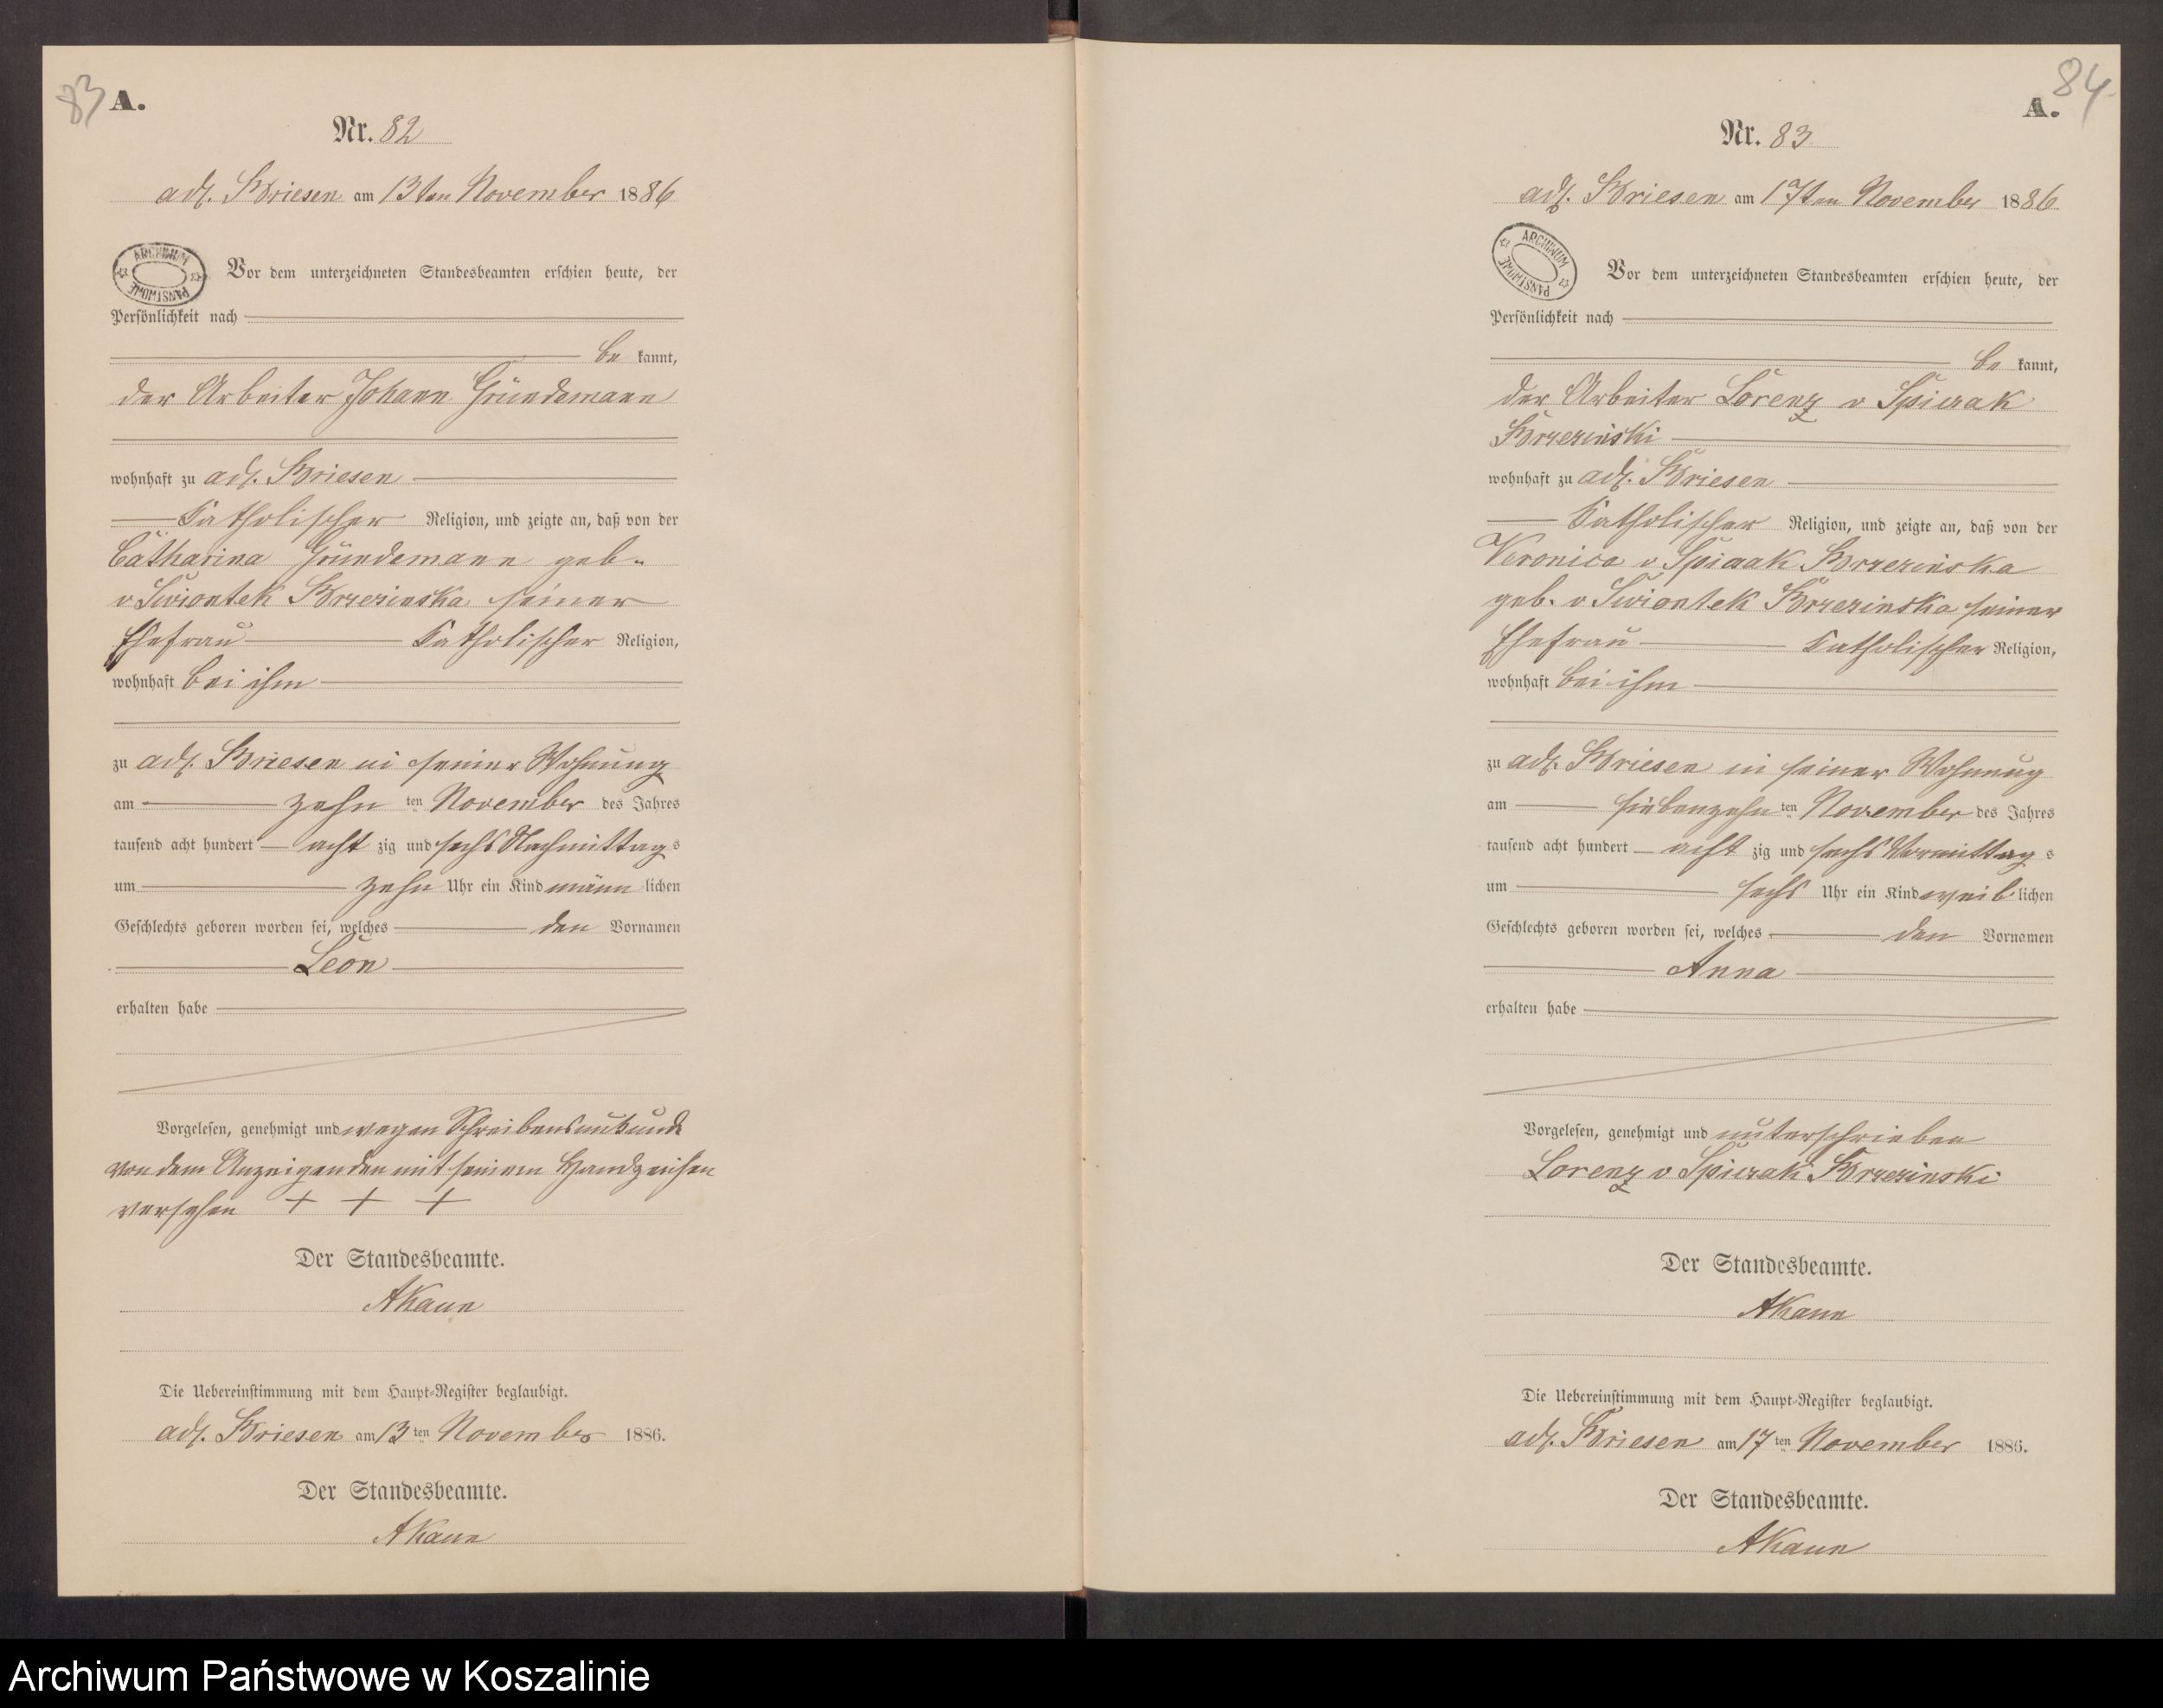 83 A.
Nr. 82
adl. Briesen am 13ten November 1886
ARCHIWUM PAŃSTWOWE
Vor dem unterzeichneten Standesbeamten erschien heute, der
Persönlichkeit nach
be kannt,
der Arbeiter Johann Gründemann
wohnhaft zu adl. Briesen
katholischer Religion, und zeigte an, daß von der
Catharina Gründemann geb.
v Swiontek Brzezinska seiner
Ehefrau katholischer Religion,
wohnhaft bei ihm
zu adl. Briesen in seiner Wohnung
am zehn ten November des Jahres
tausend acht hundert acht zig und sechs Nachmittag s
um zehn Uhr ein Kind männ lichen
Geschlechts geboren worden sei, welches den Vornamen
Leon
erhalten habe
Vorgelesen, genehmigt und wegen Schreibensunkunde
von dem Anzeigenden mit seinem Handzeichen
versehen + + +
Der Standesbeamte.
AKaun
Die Uebereinstimmung mit dem Haupt-Register beglaubigt.
adl. Briesen am 13 ten November 1886.
Der Standesbeamte.
AKaun
A. 84
Nr. 83
adl. Briesen am 17ten November 1886
ARCHIWUM PAŃSTWOWE
Vor dem unterzeichneten Standesbeamten erschien heute, der
Persönlichkeit nach
be kannt,
der Arbeiter Lorenz v Spiczak
Brzezinski
wohnhaft zu adl. Briesen
katholischer Religion, und zeigte an, daß von der
Veronica v Spiczak Brzezinska
geb. v Swiontek Brzezinska seiner
Ehefrau katholischer Religion,
wohnhaft bei ihm
zu adl. Briesen in seiner Wohnung
am siebenzehn ten November des Jahres
tausend acht hundert acht zig und sechs Vormittag s
um sechs Uhr ein Kind weib lichen
Geschlechts geboren worden sei, welches den Vornamen
Anna
erhalten habe
Vorgelesen, genehmigt und unterschrieben
Lorenz v Spiczak Brzezinski
Der Standesbeamte.
AKaun
Die Uebereinstimmung mit dem Haupt-Register beglaubigt.
adl. Briesen am 17 ten November 1886.
Der Standesbeamte.
AKaun
Archiwum Państwowe w Koszalinie